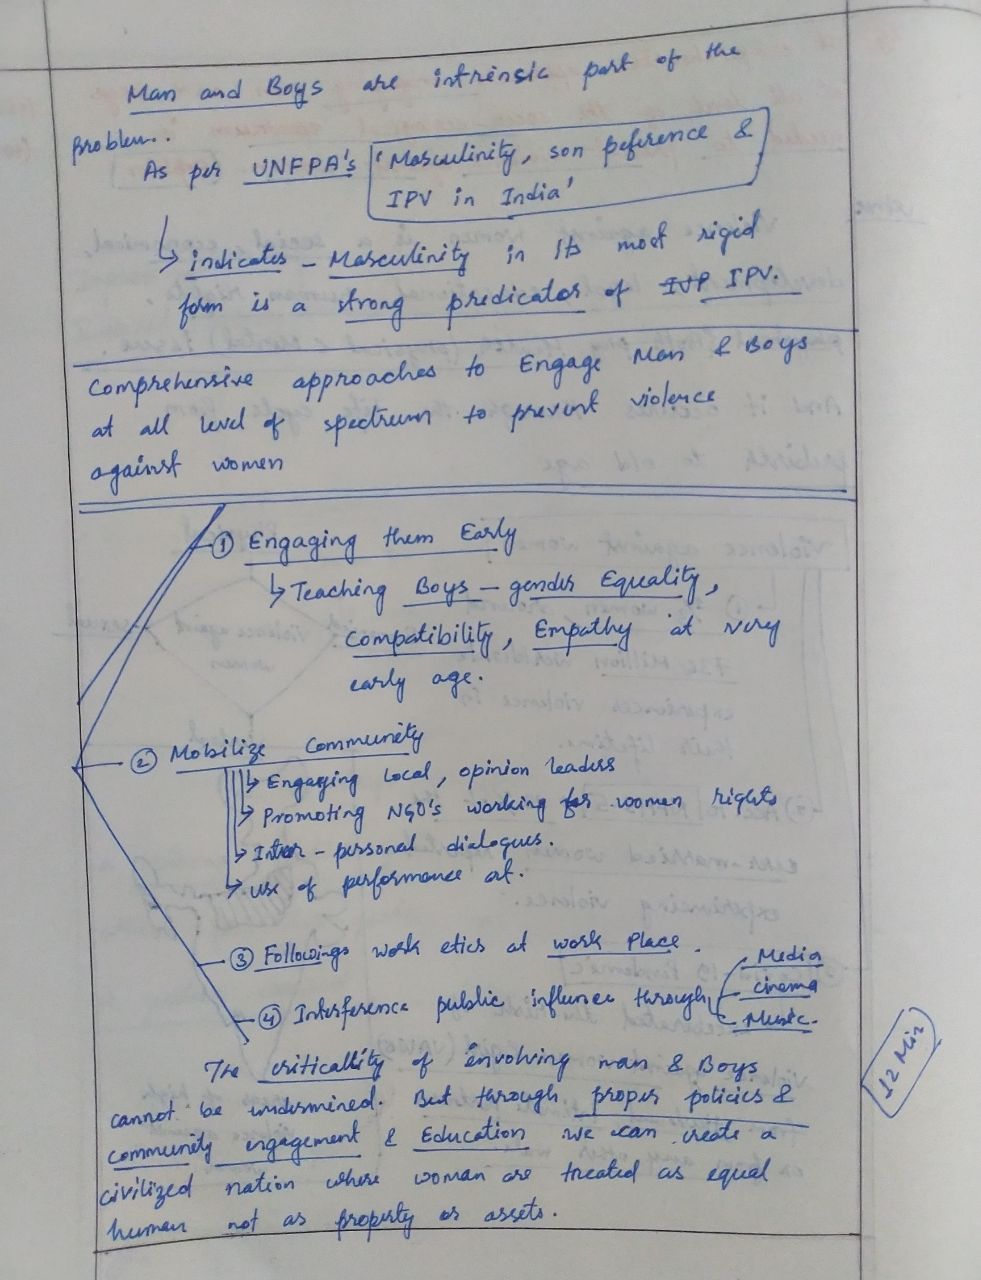 Man and Boys are intrinsic part of the
problem..
As per UNFPA's 'Masculinity, son peference &
IPV in India'
↳ indicates - Masculinity in its most rigid
form is a strong predicator of IVP IPV.
Comprehensive approaches to Engage Man & Boys
at all level of spectrum to prevent violence
against women
① Engaging them Early
↳ Teaching Boys - gender Equality,
compatibility, Empathy at very
early age.
② Mobilize Community
↳ Engaging local, opinion leaders
↳ Promoting NGO's working for women rights
↳ Inter-personal dialogues.
↳ use of performance art.
③ Followings work etics at work Place.
④ Interference public influence through
Media
cinema
Music.
The criticallity of involving man & Boys
cannot be undermined. But through proper policies &
community engagement & Education we can create a
civilized nation where woman are treated as equal
human not as property or assets.
12 Min